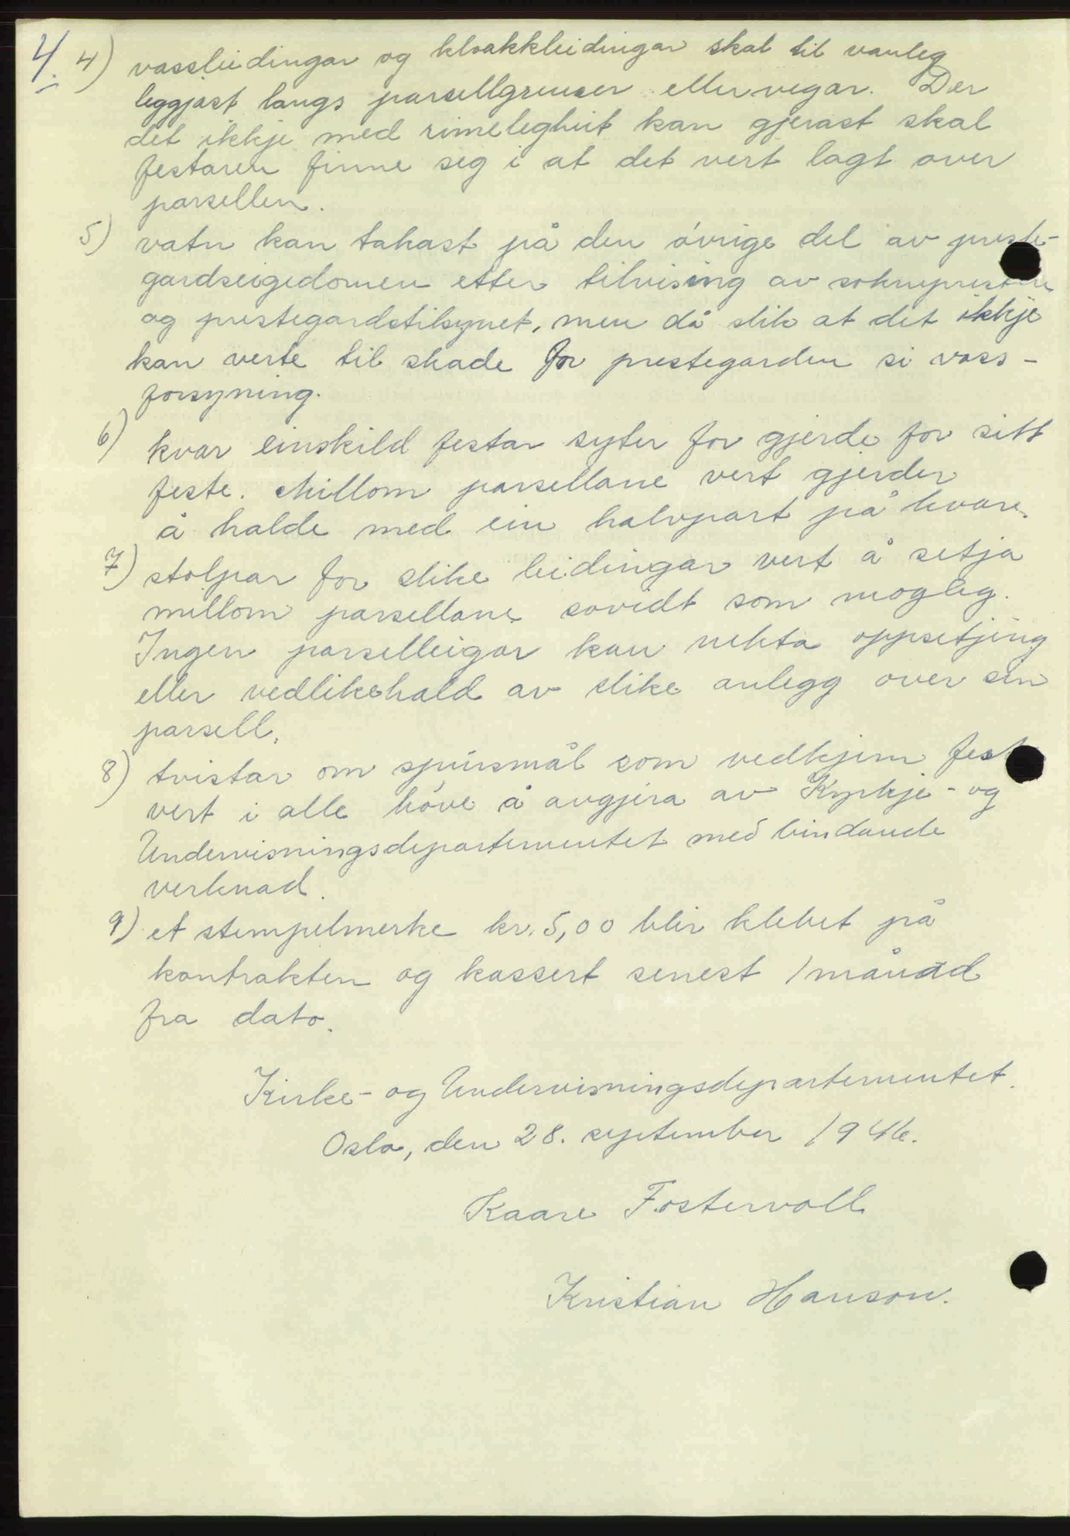 4.
4) vassleidingar og kloakkleidingar skal til vanleg
leggjast langs parsellgrenser eller vegar. Der
det ikkje med rimeleghet kan gjerast skal
festaren finne seg i at det vert lagt over
parsellen.
5) vatn kan takast på den övrige del av preste-
gardseigedomen etter tilvising av soknepresten
og prestegardstilsynet, men då slik at det ikkje
kan verte til skade for prestegarden si vass-
forsyning.
6) kvar einskild festar syter for gjerde for sitt
feste. Millom parsellane vert gjerder
å halde med ein halvpart på kvare.
7) stolpar for slike leidingar vert å setja
millom parsellane sovidt som mogleg.
Ingen parselleigar kan nekta oppsetjing
eller vedlikehald av slike anlegg over sin
parsell.
8) tvistar om spursmål som vedkjem
vert i alle höve å avgjera av Kyrkje- og
Undervisningsdepartementet med bindande
verknad.
9) et stempelmerke kr. 5,00 blir klebet på
kontrakten og kassert senest 1 månad
fra dato.
Kirke- og Undervisningsdepartementet.
Oslo, den 28. september 1946.
Kaare Fostervoll
Kristian Hanson.